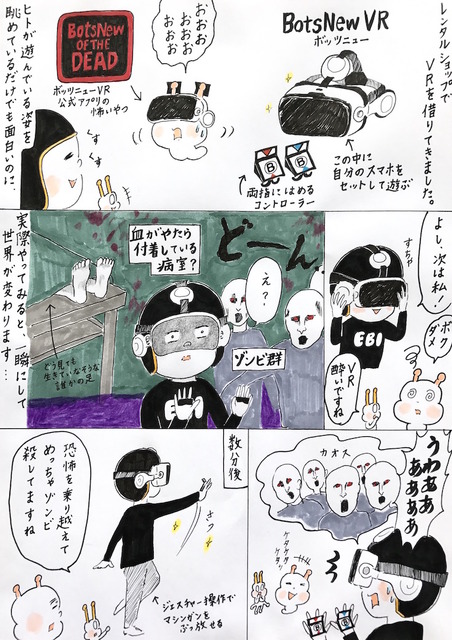 レンタルショップで
VRを借りてきました。
BotsNew VR
ボッツニュー
この中に
自分のスマホを
セットして遊ぶ
両指にはめる
コントローラー
おおお
おおお
おおお
BotsNew
OF THE
DEAD
ボッツニューVR
公式アプリの
怖いやつ
ヒトが遊んでいる姿を
眺めているだけでも面白いのに…
くす
くす
よし、次は私!
すちゃ
EBI
ボク
ダメ
VR
酔いですね
どーん
え?
血がやたら
付着している
病室?
ゾンビ群
E
どう見ても
生きていなそうな
誰かの足
実際やってみると、一瞬にして
世界が変わります…
うわああ
ああああ
カオス
ケタケタ
ケタッ
数分後
さっ
ジェスチャー操作で
マシンガンを
ぶっ放せる
恐怖を乗り越えて
めっちゃゾンビ
殺してますね